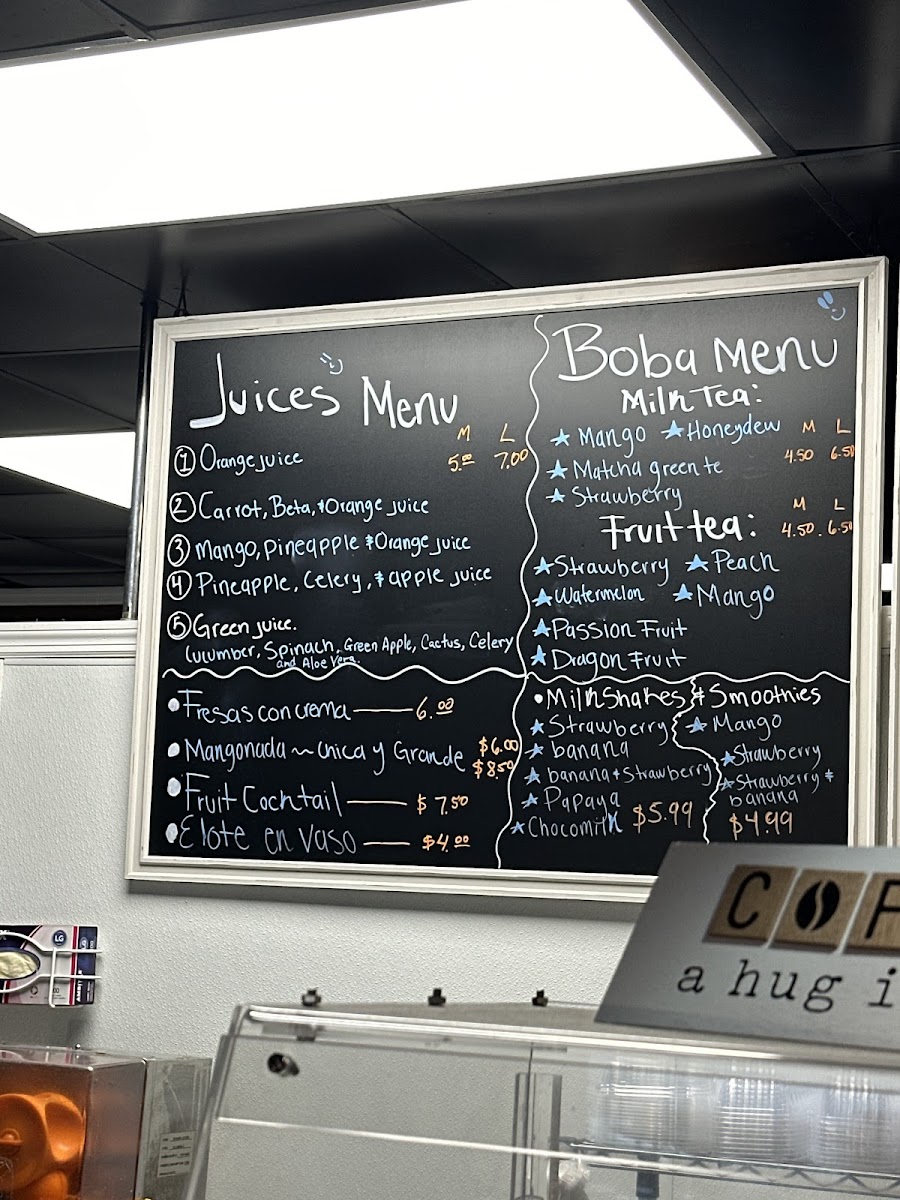 Juices Menu
M L
① Orange juice 5.00 7.00
② Carrot, Beta, & Orange juice
③ Mango, pineapple & Orange juice
④ Pineapple, Celery, & apple juice
⑤ Green juice.
Cucumber, Spinach, Green Apple, Cactus, Celery
and Aloe Vera.
• Fresas con crema — 6.00
• Mangonada ~ chica y Grande $6.00
$8.50
• Fruit Cocktail — $ 7.50
• Elote en vaso — $4.00
Boba Menu
Milk Tea:
★ Mango ★ Honeydew M L
★ Matcha green te 4.50 6.50
★ Strawberry
M L
Fruit tea: 4.50. 6.50
★ Strawberry ★ Peach
★ Watermelon ★ Mango
★ Passion Fruit
★ Dragon Fruit
• Milkshakes & Smoothies
★ Strawberry
★ banana
★ banana + Strawberry
★ Papaya
★ Chocomilk $5.99
★ Mango
★ Strawberry
★ Strawberry &
banana
$4.99
LG
COF
a hug i